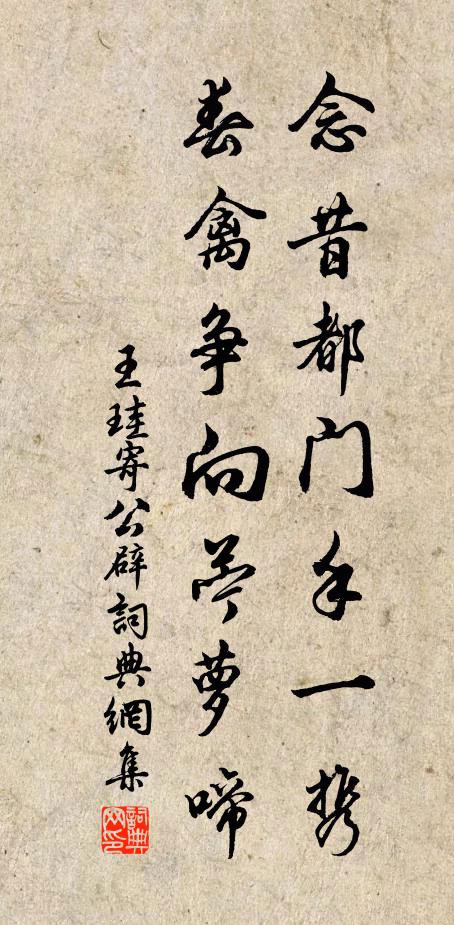 念昔都门手一携
春禽争向苧萝啼
王珪寄公辟詞典網集
詞典网印